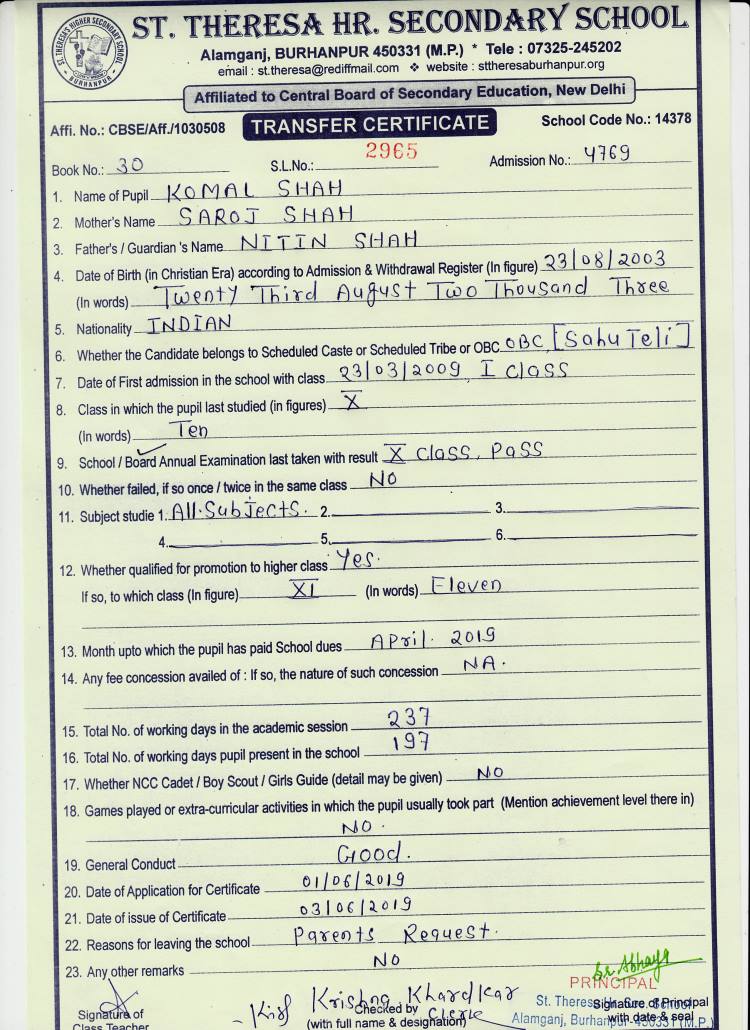 ST. THERESA'S HIGHER SECONDARY SCHOOL
BURHANPUR
ST. THERESA HR. SECONDARY SCHOOL
Alamganj, BURHANPUR 450331 (M.P.) * Tele : 07325-245202
email : st.theresa@rediffmail.com ❖ website : sttheresaburhanpur.org
Affiliated to Central Board of Secondary Education, New Delhi
Affi. No.: CBSE/Aff./1030508 TRANSFER CERTIFICATE School Code No.: 14378
Book No.: 30 S.L.No.: 2965 Admission No.: 4769
1. Name of Pupil KOMAL SHAH
2. Mother's Name SAROJ SHAH
3. Father's / Guardian 's Name NITIN SHAH
4. Date of Birth (in Christian Era) according to Admission & Withdrawal Register (In figure) 23/08/2003
(In words) Twenty Third August Two Thousand Three
5. Nationality INDIAN
6. Whether the Candidate belongs to Scheduled Caste or Scheduled Tribe or OBC OBC [Sahu Teli]
7. Date of First admission in the school with class 23/03/2009, I class
8. Class in which the pupil last studied (in figures) X
(In words) Ten
9. School / Board Annual Examination last taken with result X class, Pass
10. Whether failed, if so once / twice in the same class NO
11. Subject studie 1. All Subjects. 2. 3.
4. 5. 6.
12. Whether qualified for promotion to higher class Yes.
If so, to which class (In figure) XI (In words) Eleven
13. Month upto which the pupil has paid School dues April. 2019
14. Any fee concession availed of : If so, the nature of such concession NA.
15. Total No. of working days in the academic session 237
16. Total No. of working days pupil present in the school 197
17. Whether NCC Cadet / Boy Scout / Girls Guide (detail may be given) NO
18. Games played or extra-curricular activities in which the pupil usually took part (Mention achievement level there in)
NO.
19. General Conduct Good.
20. Date of Application for Certificate 01/06/2019
21. Date of issue of Certificate 03/06/2019
22. Reasons for leaving the school Parents Request.
23. Any other remarks NO
PRINCIPAL
Krishna Khardkar
Signature of Checked by Clerk St. Theresa Signature of Principal
Class Teacher (with full name & designation) Alamganj, Burhanpur-450331 (M.P.) with date & seal